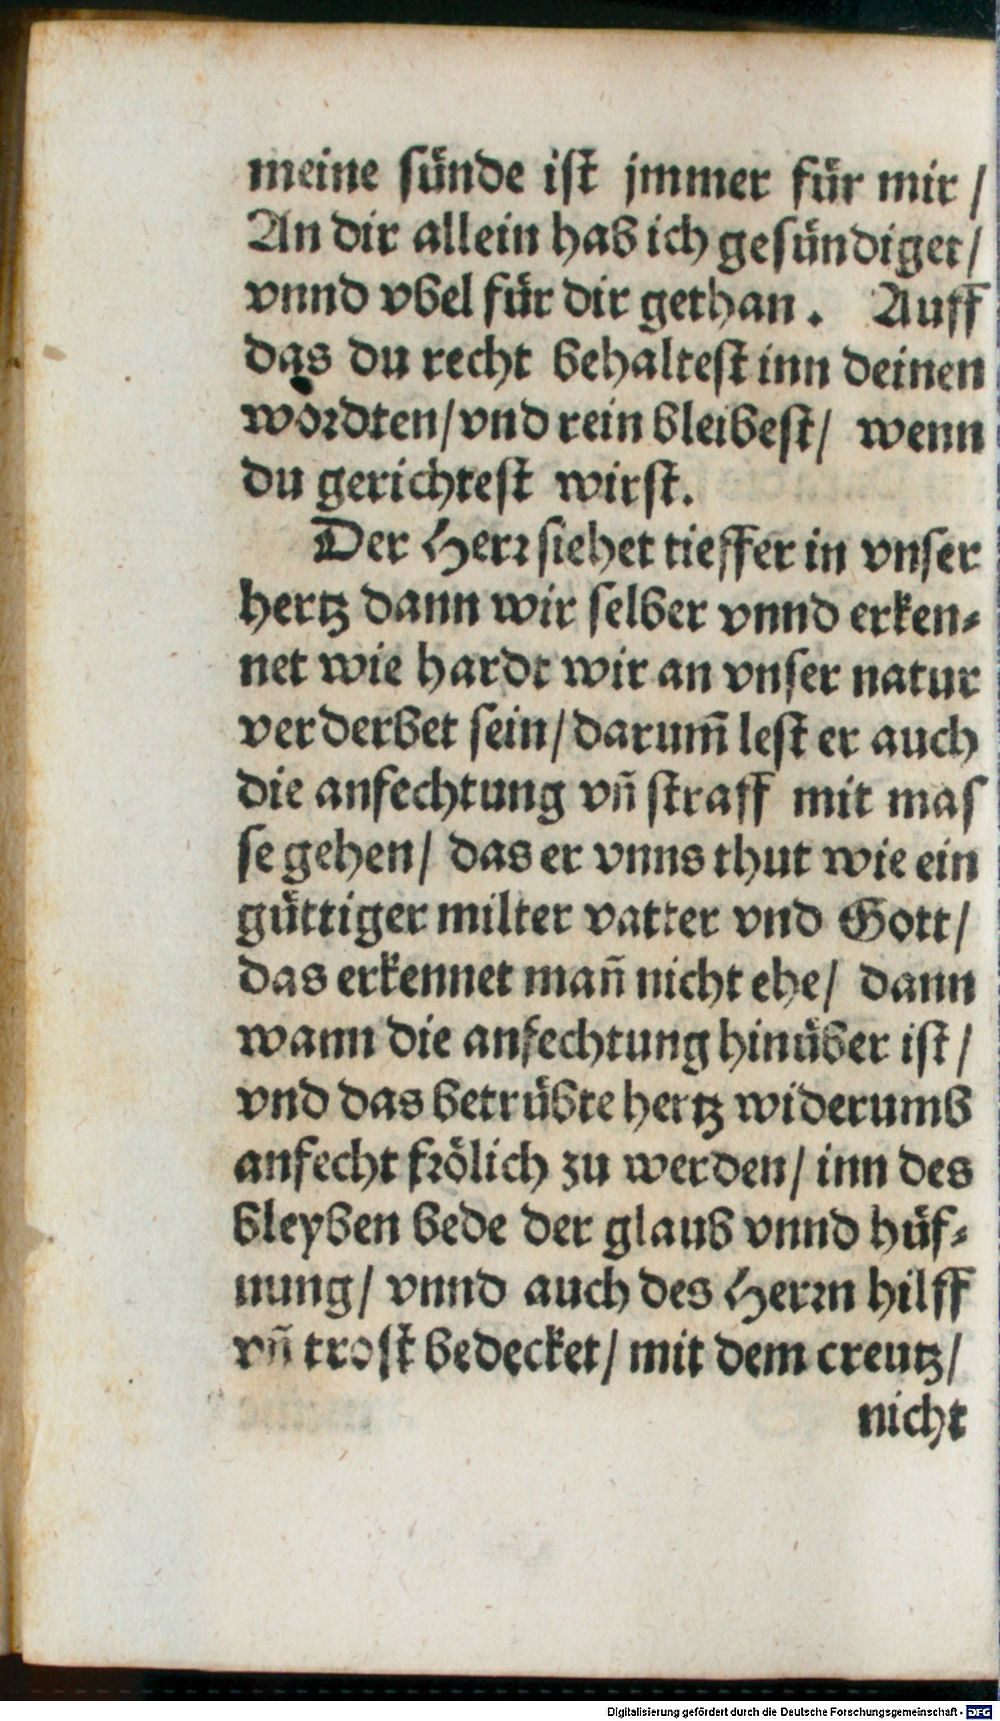 meine sünde ist jmmer für mir /
An dir allein hab ich gesündiget /
vnnd vbel für dir gethan . Auff
das du recht behaltest inn deinen
wordten / vnd rein bleibest / wenn
du gerichtest wirst.
Der Herr siehet tieffer in vnser
hertz dann wir selber vnnd erken⸗
net wie hardt wir an vnser natur
verderbet sein / darum̃ lest er auch
die anfechtung vñ straff mit mas
se gehen / das er vnns thut wie ein
güttiger milter vatter vnd Gott /
das erkennet mañ nicht ehe / dann
wann die anfechtung hinüber ist /
vnd das betrübte hertz widerumb
anfecht frölich zu werden / inn des
bleyben bede der glaub vnnd hüf⸗
nung / vnnd auch des Herrn hilff
vñ trost bedecket / mit dem creutz /
nicht
Digitalisierung gefördert durch die Deutsche Forschungsgemeinschaft - DFG